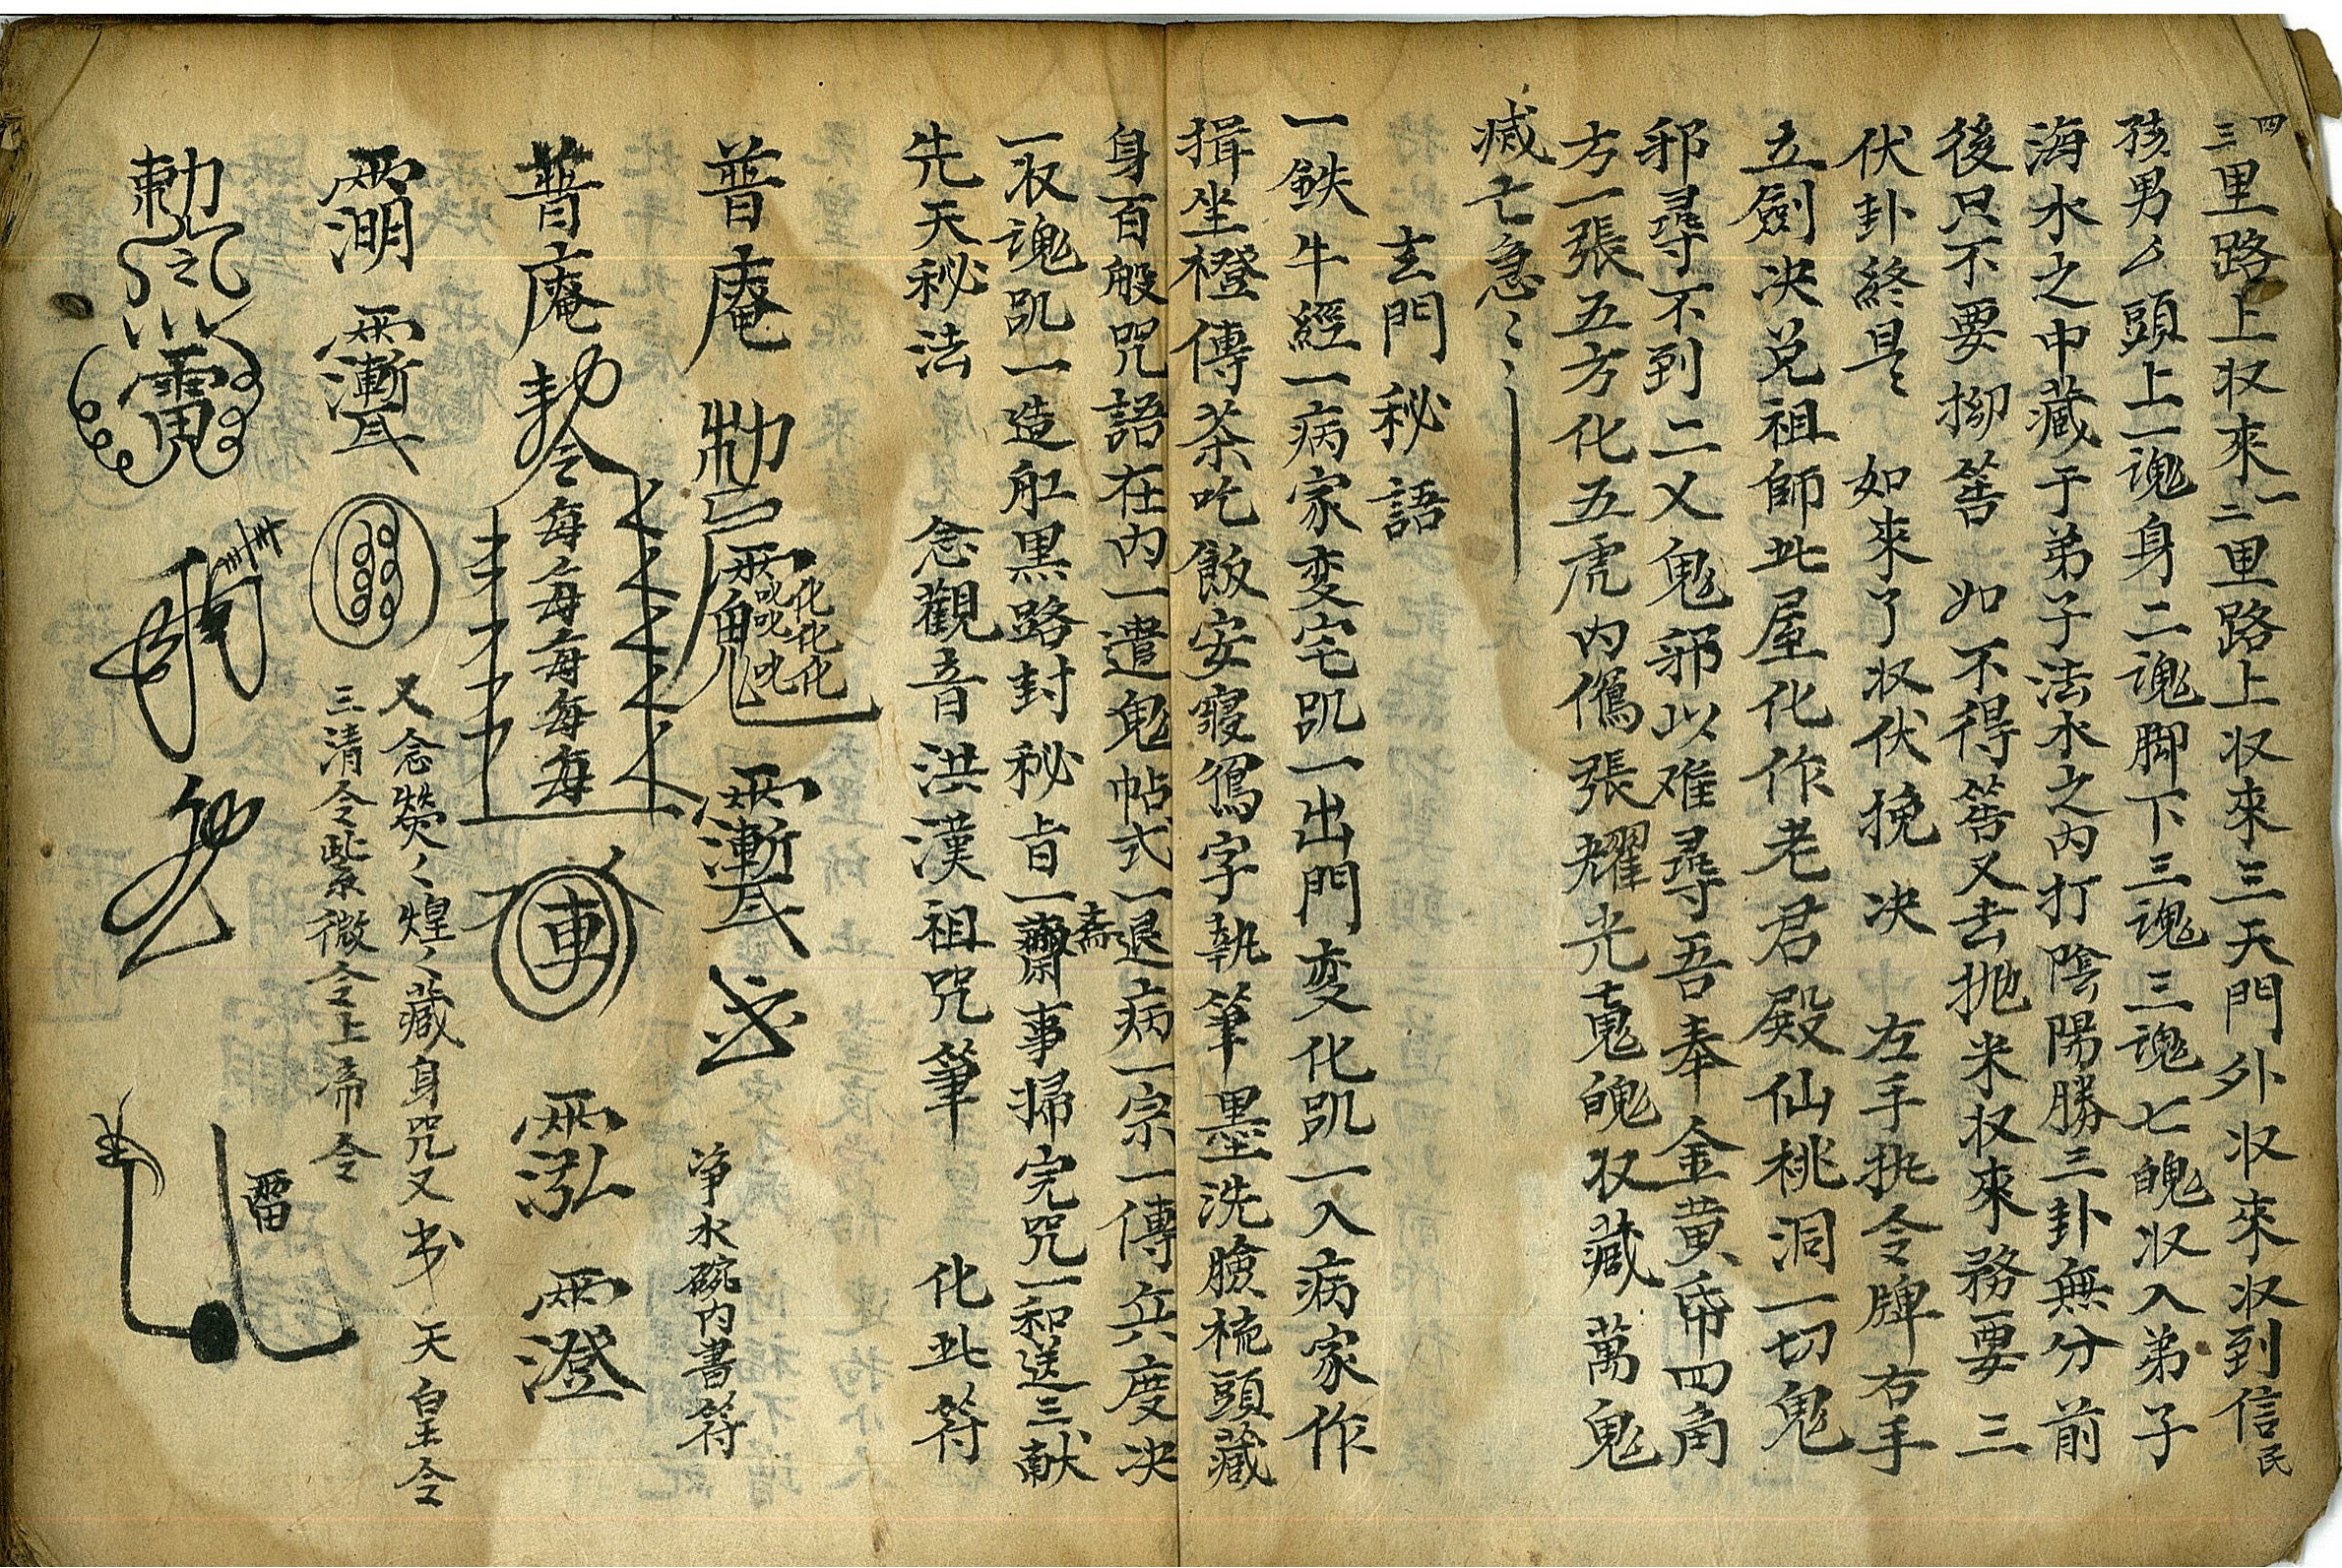 四
三里路上収來一二里路上収來三天門外収來収到信民
孩男厶頭上一魂身二魂脚下三魂三魂七魄収入弟子
海水之中藏于弟子法水之内打陰陽勝三卦無分前
後只不要拗筶 如不得筶又去抛米収來務要三
伏卦終是〻 如來了収伏挽决 左手执令牌右手
立劍决兑祖師此屋化作老君殿仙桃洞一切鬼
邪尋不到二乂鬼邪以难尋吾奉金黄帋四角
方一張五方化五虎内僞張耀光魂魄収藏萬鬼
滅亡急〻〻
玄門秘語
一鉄牛經一病家変宅咒一出門変化咒一入病家作
揖坐橙傳茶吃飯安寢寫字執筆墨洗臉梳頭藏
身百般咒語在内一遣鬼帖式一退病一宗一傳兵度决
一収魂咒一造舡黑路封秘旨一齋事掃完咒一和送三献
齋
先天秘法 念觀音洪漢祖咒筆 化此符
普庵 勑 化化化 叱叱叱
净水碗内書符
普庵勅令每每每每每 車
又念熒〻煌〻藏身咒又书天皇令
三清令紫微令上帝令
勅
雷